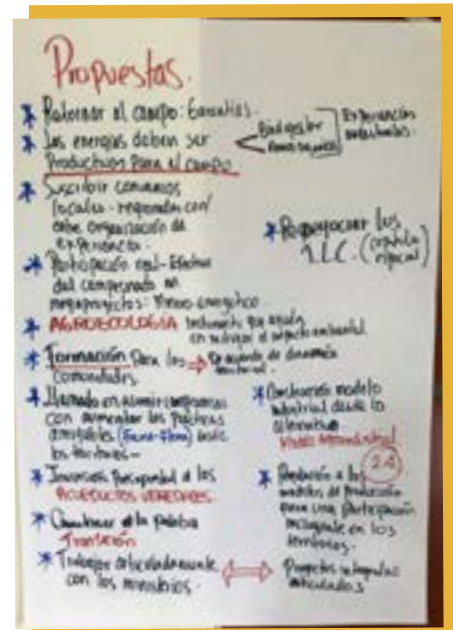 Propuestas.
* Retornar al campo: Garantías.
* Las energías deben ser
Productivas Para el campo
Biodigestor
Paneles
Experiencias
* Suscribir convenios
locales - regionales con/
organización de
experiencia.
* Renegociar los
T.L.C. (capítulo
* Participación real - Efectiva
del campesinado en
megaproyectos: Minero energético
* AGROECOLOGÍA Instrumento que ayuda
en mitigar el impacto ambiental.
* Formación Para las
Comunidades
De acuerdo de dinámica
territorial.
* Llamado en asumir compromisos
con aumentar las Prácticas
amigables (Fauna-Flora) desde
los territorios -
* Construcción modelo
industrial desde lo
alternativo
* Inversión Presupuestal a los
ACUEDUCTOS VEREDALES
2.4
* a los
modelos de producción
para una Participación
en los
territorios.
* Cambiar la palabra
Transición
* Trabajar articuladamente
con los ministerios.
Proyectos integrales
articulados